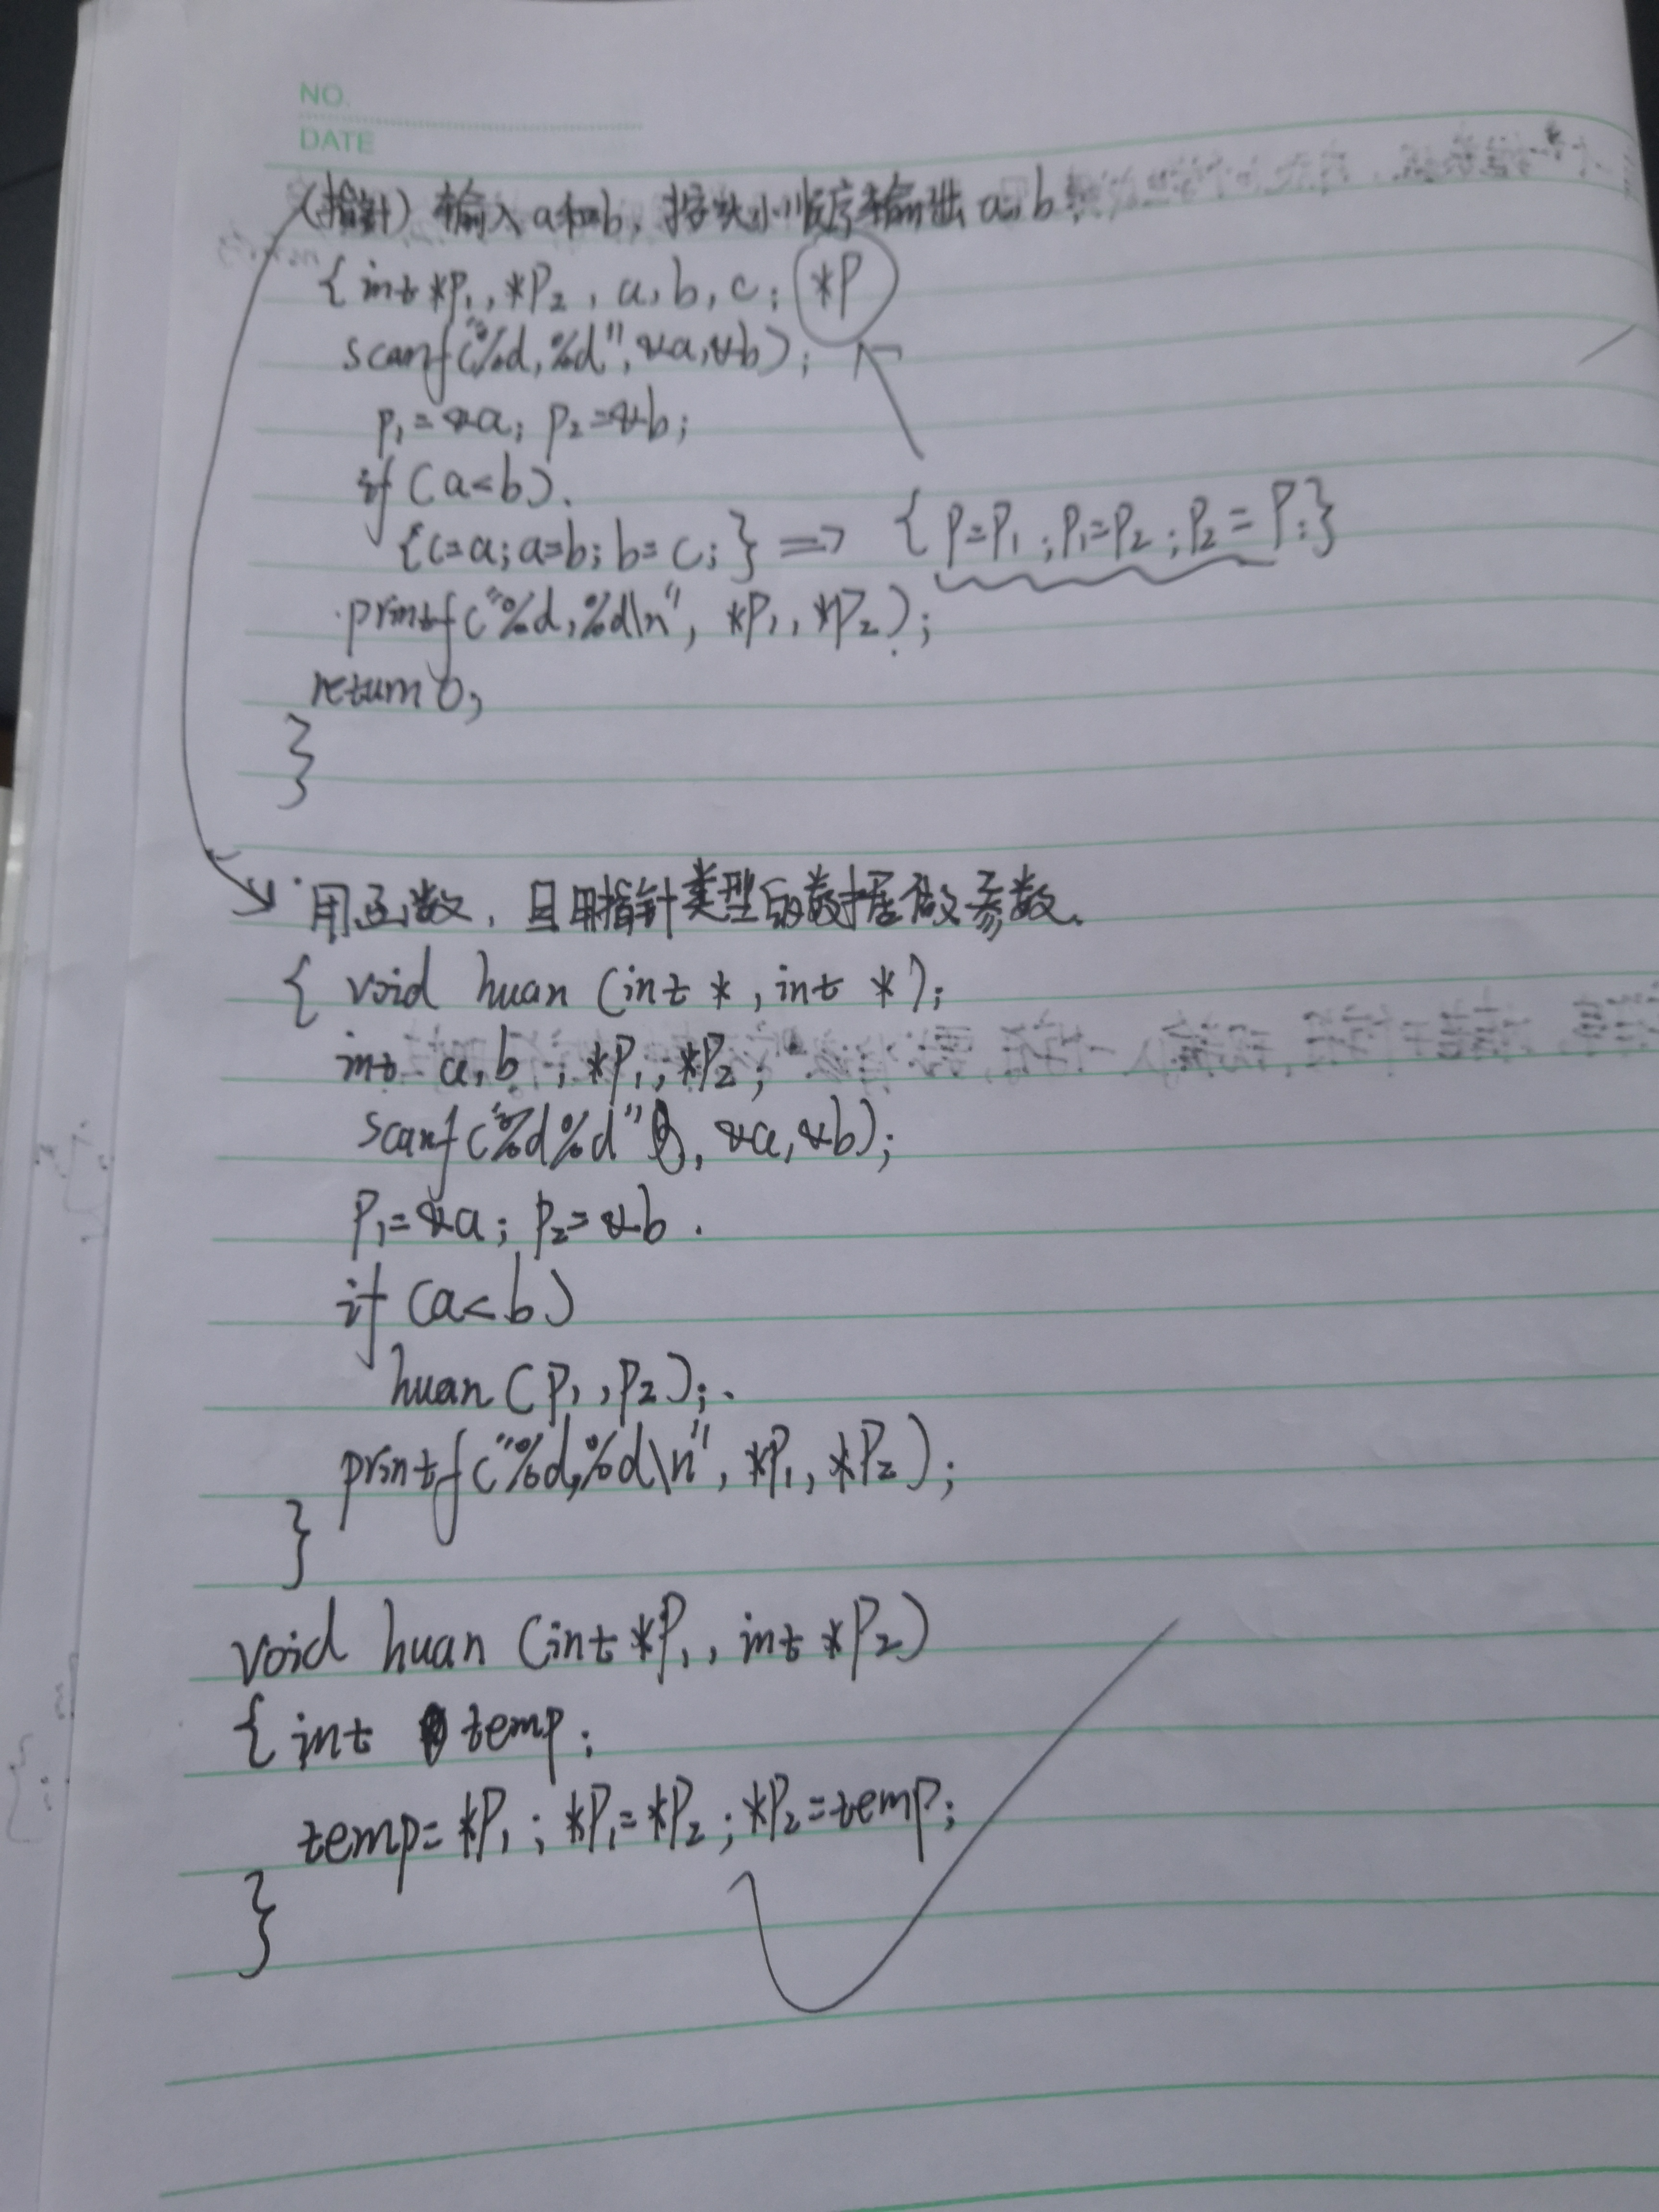 NO.
DATE
(指针) 输入a和b,按大小顺序输出a,b.
{int *P1, *P2, a, b, c; *P
scanf("%d,%d",&a,&b);
P1=&a; P2=&b;
if (a<b).
{c=a; a=b; b=c;} => {P=P1; P1=P2; P2=P;}
printf("%d,%d\n", *P1, *P2);
return 0;
}
用函数,且用指针类型的数据做参数.
{ void huan (int *, int *);
int a,b, *P1, *P2;
scanf("%d%d", &a,&b);
P1=&a; P2=&b.
if (a<b)
huan (P1, P2);
printf("%d,%d\n", *P1, *P2);
}
void huan (int *P1, int *P2)
{ int temp;
temp=*P1; *P1=*P2; *P2=temp;
}